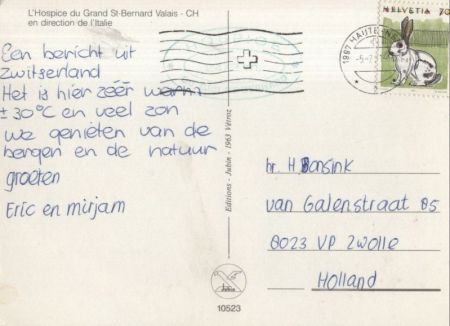 L'Hospice du Grand St-Bernard Valais - CH
en direction de l'Italie
Een bericht uit
Zwitserland
Het is hier zéér warm
± 30°C en veel zon
we genieten van de
bergen en de natuur
groeten
Eric en Mirjam
Editions - Jubin - 1963 Vétroz
10523
1987 HAUTE
HELVETIA 70
hr. H Bonsink
van Galenstraat 85
8023 VP Zwolle
Holland